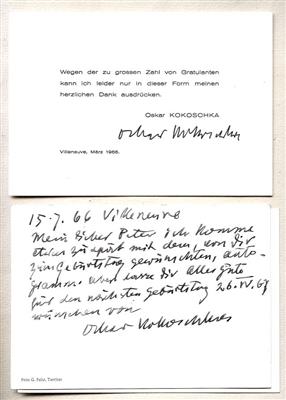 Wegen der zu grossen Zahl von Gratulanten
kann ich leider nur in dieser Form meinen
herzlichen Dank ausdrücken.
Oskar KOKOSCHKA
Oskar Kokoschka
Villeneuve, März 1966.
15.7.66 Villeneuve
Mein lieber Peter Ich komme
etwas zu spät mit dem, von Dir
zum Geburtstag gewünschten, Auto-
gramm. Aber lasse Dir alles Gute
für den nächsten Geburtstag 26.IV.67
wünschen von
Oskar Kokoschka
Foto G. Fehr, Territet